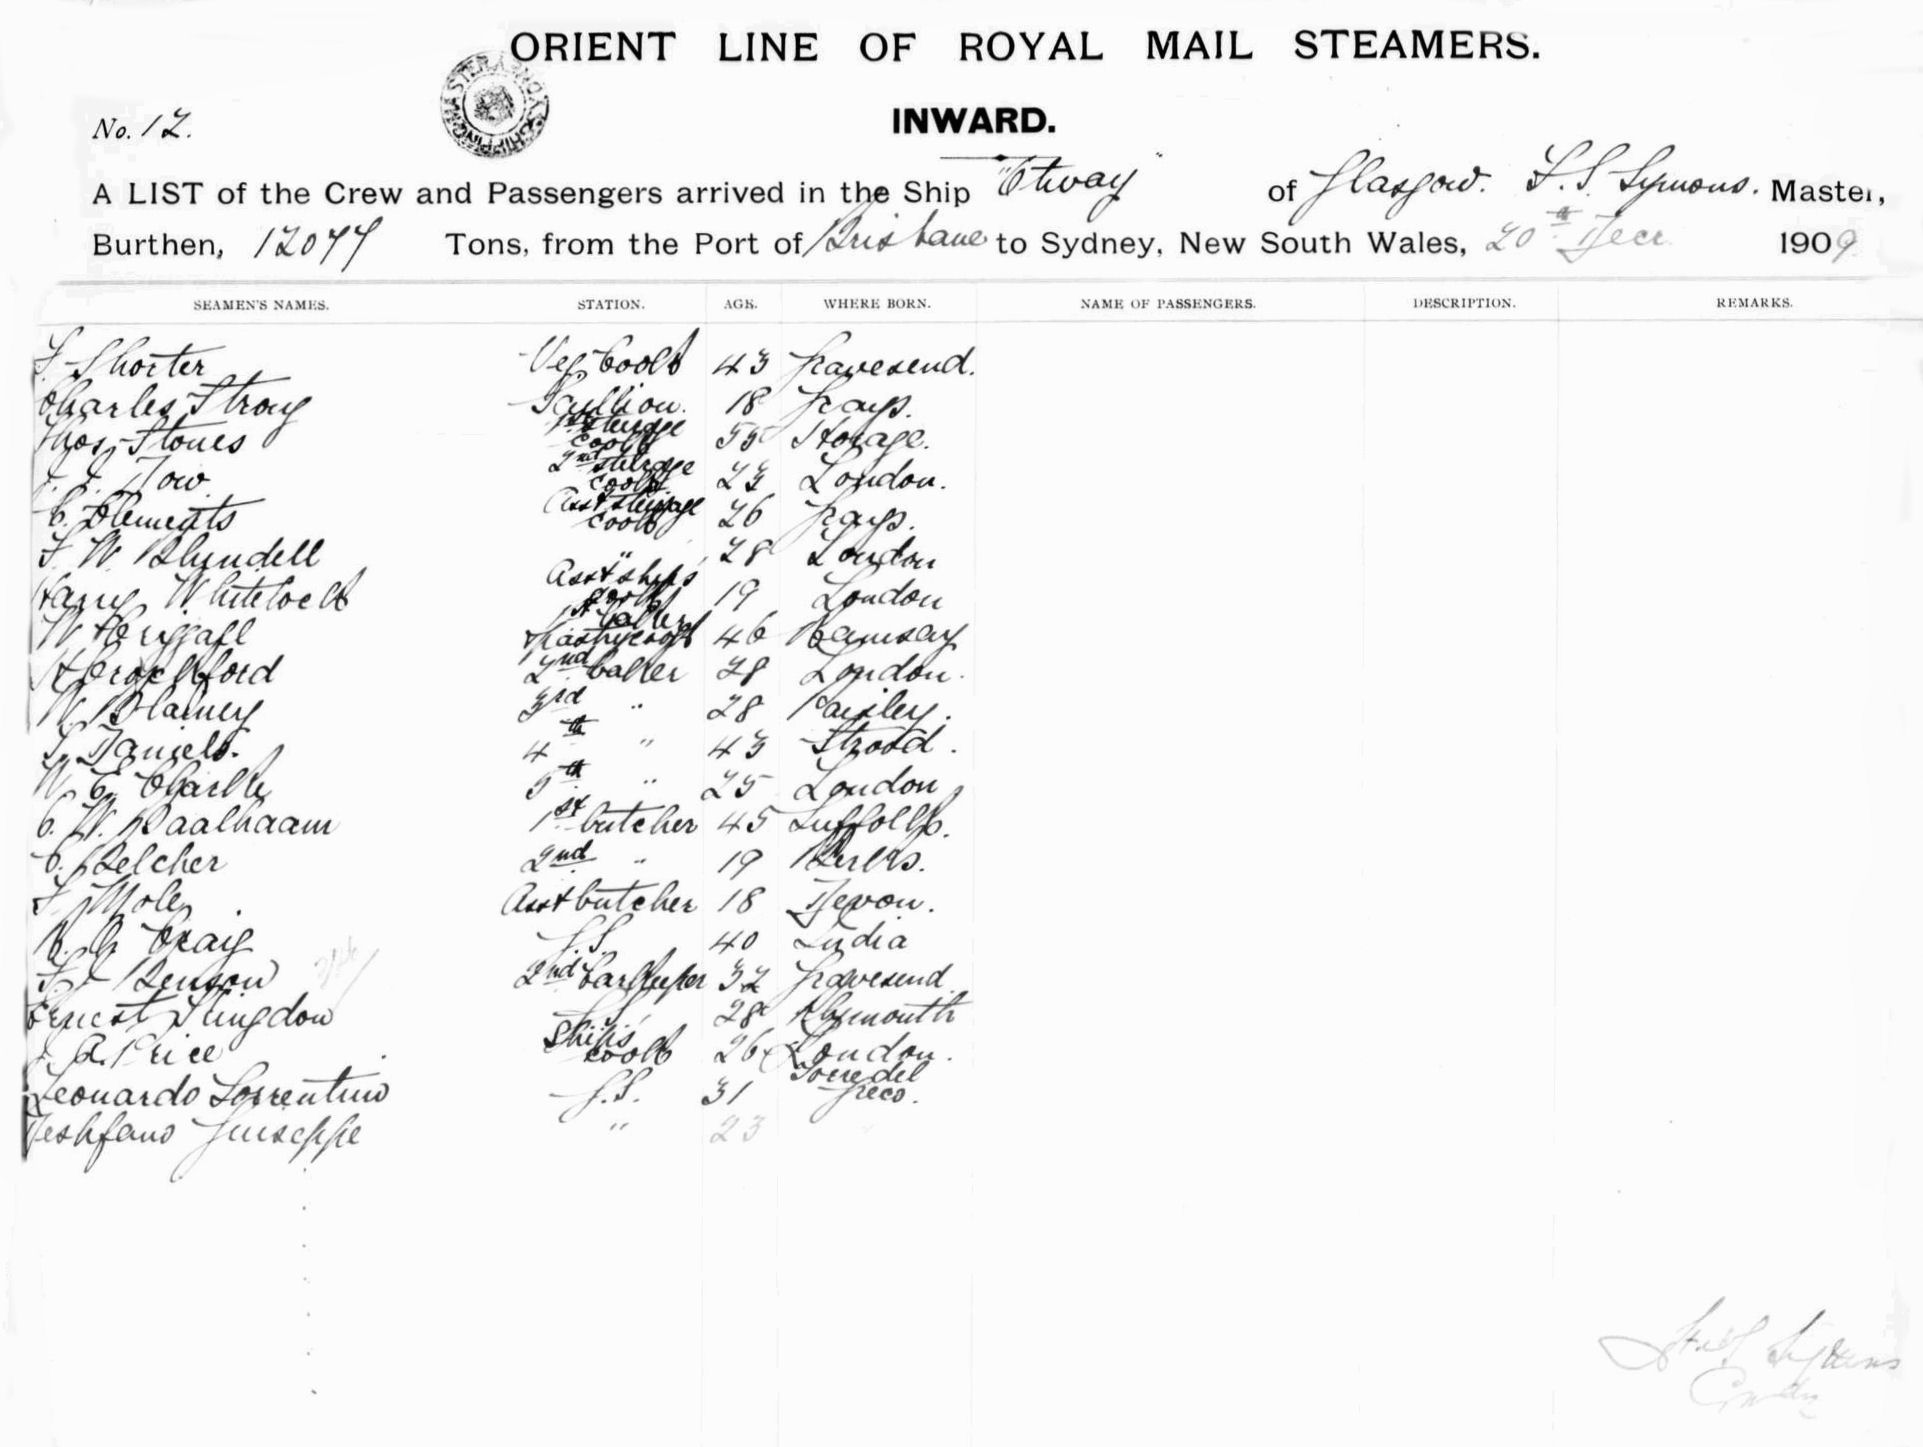 ORIENT LINE OF ROYAL MAIL STEAMERS.
INWARD.
No. 12.
A LIST of the Crew and Passengers arrived in the Ship "Otway" of Glasgow. Symons. Master,
Burthen, 12077 Tons, from the Port of Brisbane to Sydney, New South Wales, 20th Decr 1909
SEAMEN'S NAMES. STATION. AGE. WHERE BORN. NAME OF PASSENGERS. DESCRIPTION. REMARKS.
F. Shorter Veg Cook 43 Gravesend.
Charles Strong Scullion. 18 Grays.
Thos Stones 1st steerage cook 55
Tow 2nd steerage cook 23 London.
C. Clements Asst steerage cook 26 Grays.
F. W. Blundell " 28 London
Harry Whitelock Asst ships cook 19 London
W. 1st baker & pastrycook 46 Ramsay
2nd baker 28 London.
W. Blainey 3rd " 28 Paisley.
Daniels. 4th " 43 Strood.
W. C. Clarke 5th " 25 London
C. W. Baalhaam 1st butcher 45 Suffolk.
C. Belcher 2nd " 19 Berks.
F. Mole Asst butcher 18 Devon.
Craig G.S. 40 India
Benson 2nd barkeeper 32 Gravesend
Ernest G.S. 28 Plymouth
A. Price Ship's cook 26 London.
Leonardo Sorrentino G.S. 31 Torre del Greco.
Giuseppe " 23